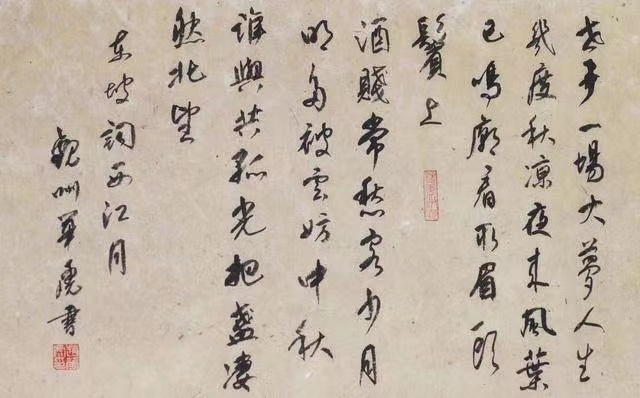 世事一場大夢人生
幾度秋凉夜来風葉
已鳴廊看取眉頭
鬢上
酒賤常愁客少月
明多被云妨中秋
誰與共孤光把盞凄
然北望
东坡詞西江月
州書